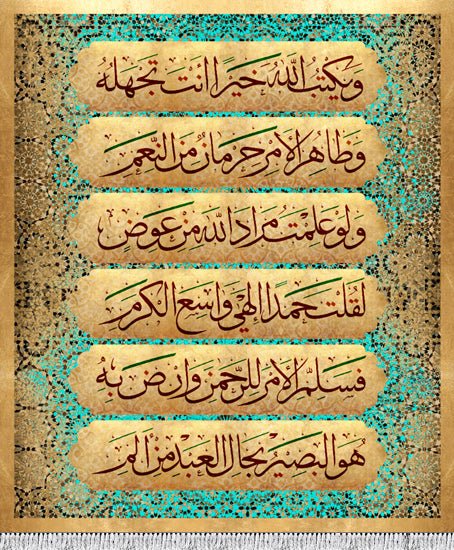 ويكتب الله خيرا انت تجهله
وظاهر الأمر حرمان من النعم
ولو علمت مراد الله من عوض
لقلت حمدا إلهي واسع الكرم
فسلم الأمر للرحمن وارض به
هو البصير بحال العبد من ألم